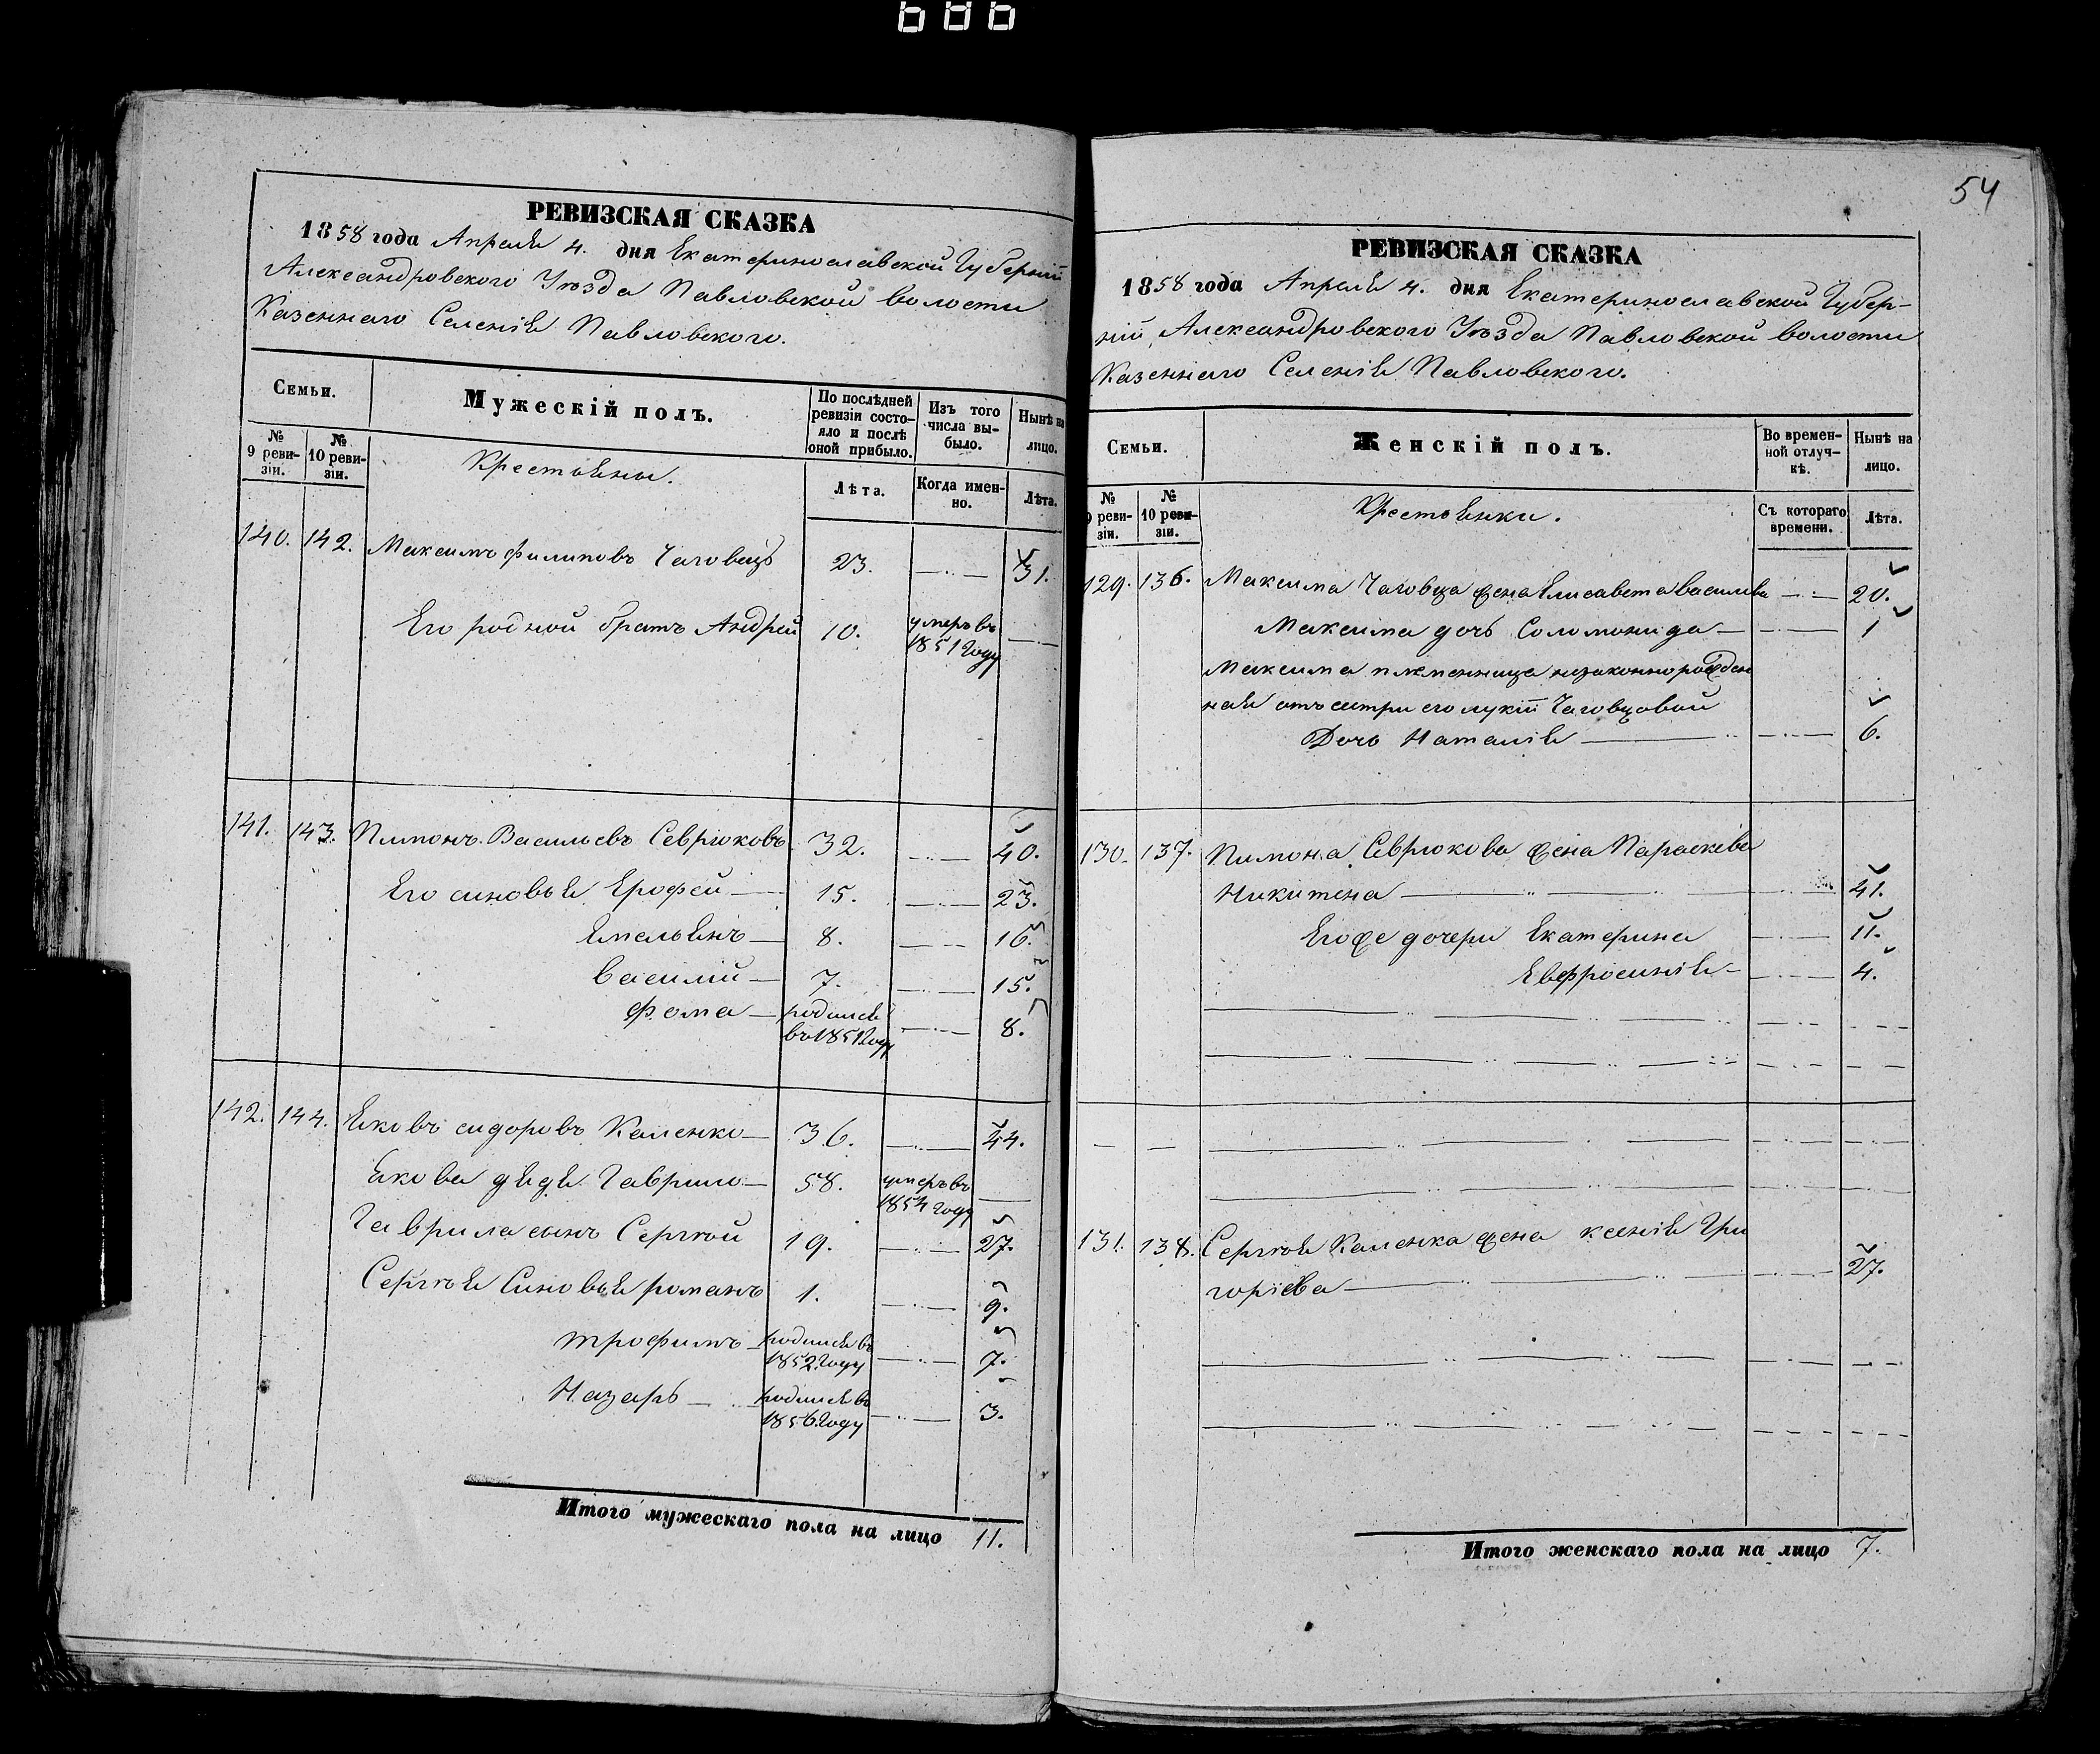 686
РЕВИЗСКАЯ СКАЗКА
1858 года Апреля 4. дня Екатеринославской Губерніи
Александровского Уѣзда Павловской волости
Казеннаго Селенія Павловского.
Семьи.
Мужескій полъ.
По послѣдней ревизіи состо-яло и послѣ оной прибыло.
Изъ того числа вы-было.
Нынѣ на лицо.
№ 9 реви-зіи.
№ 10 реви-зіи.
Крестьяны.
Лѣта.
Когда имен-но.
Лѣта.
140. 142. Максимъ Филиповъ Чаговецъ 23. 31.
Его родной братъ Андрей 10. умеръ въ 1851 году
141. 143. Пимонъ Васильевъ Севрюковъ 32. 40.
Его синовья Ерофей 15. 23.
Емельянъ 8. 16.
Василій 7. 15.
Фома родился въ 1851 году 8.
142. 144. Яковъ Сидоровъ Каленко 36. 44.
Якова дядя Гаврило 58. умеръ въ 1854 году
Гаврила сынъ Сергѣй 19. 27.
Сергѣя Синовья романъ 1. 9.
трофимъ родился въ 1852 году 7.
Назаръ родился въ 1856 году 3.
Итого мужескаго пола на лицо 11.
54
РЕВИЗСКАЯ СКАЗКА
1858 года Апреля 4. дня Екатеринославской Губер-
ніи, Александровского Уѣзда Павловской волости
Казеннаго Селенія Павловского.
Семьи.
Женскій полъ.
Во времен-ной отлуч-кѣ.
Нынѣ на лицо.
№ 9 реви-зіи.
№ 10 реви-зіи.
Крестьянки.
Съ котораго времени.
Лѣта.
129. 136. Максима Чаговца жена Елисавета васильева 20.
Максима дочь Соломонида 1
Максима племенница незаконнорожден
ная отъ сестри его лукіи Чаговцовой
Дочь Наталія 6.
130. 137. Пимона Севрюкова жена Параскева
Никитена 41.
Его же дочери Екатерина 11.
Евфросинія 4.
131. 138. Сергѣя Каленка жена ксенія Гри
горіева 27.
Итого женскаго пола на лицо 7.